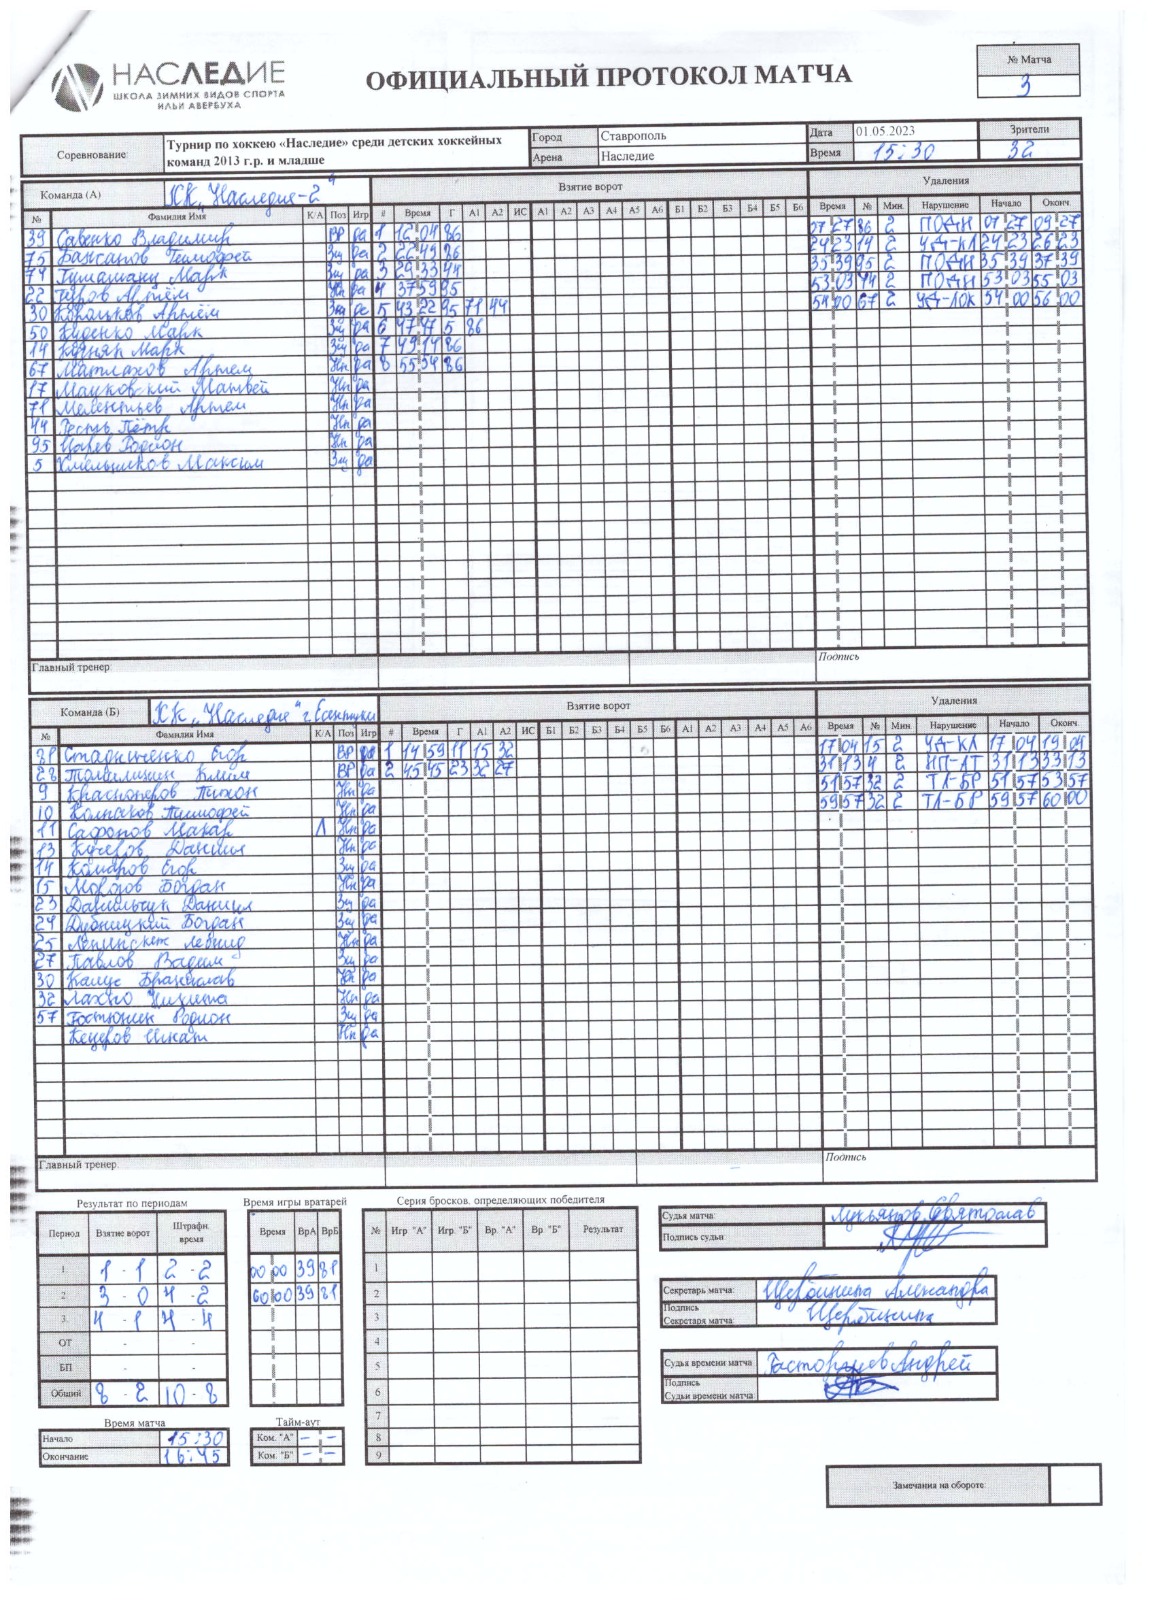 НАСЛЕДИЕ
ШКОЛА ЗИМНИХ ВИДОВ СПОРТА
ИЛЬИ АВЕРБУХА
ОФИЦИАЛЬНЫЙ ПРОТОКОЛ МАТЧА
№ Матча
3
Соревнование
Турнир по хоккею «Наследие» среди детских хоккейных
команд 2013 г.р. и младше
Город Ставрополь
Арена Наследие
Дата 01.05.2023
Время 15:30
Зрители
32
Команда (А) ХК „Наследие-2“ Взятие ворот Удаления
№ Фамилия Имя К/А Поз Игр # Время Г А1 А2 ИС А1 А2 А3 А4 А5 А6 Б1 Б2 Б3 Б4 Б5 Б6 Время № Мин. Нарушение Начало Оконч.
39 Савенко Владимир Вр да 1 12 04 86 07 27 86 2 ПОДН 07 27 09 27
75 Баксанов Тимофей Зщ да 2 22 49 86 24 23 14 2 УД-КЛ 24 23 26 23
74 Тумашянц Марк Зщ да 3 29 33 44 35 39 95 2 ПОДН 35 39 37 39
22 Гуров Артём Нп да 4 37 59 95 53 03 44 2 ПОДН 53 03 55 03
30 Корольков Артём 5 43 22 95 71 44 54 00 67 2 УД-ЛОК 54 00 56 00
50 Куценко Марк Зщ да 6 47 47 5 86
14 Марк Зщ да 7 49 14 86
67 Матлахов Артем Нп да 8 55 34 86
17 Мацковский Матвей Нп да
71 Мелентьев Артем Нп да
44 Пётр Нп да
95 Царев Родион Нп да
5 Хмельников Максим Зщ да
Главный тренер
Подпись
Команда (Б) ХК „Наследие“ г. Ессентуки Взятие ворот Удаления
№ Фамилия Имя К/А Поз Игр # Время Г А1 А2 ИС Б1 Б2 Б3 Б4 Б5 Б6 А1 А2 А3 А4 А5 А6 Время № Мин. Нарушение Начало Оконч.
81 Стадниченко Егор Вр да 1 14 59 11 15 32 17 04 15 2 УД-КЛ 17 04 19 04
28 Клим Вр да 2 45 45 23 32 27 31 13 4 2 НП-АТ 31 13 33 13
9 Красноперов Тихон Нп да 51 57 32 2 ТЛ-БР 51 57 53 57
10 Колпаков Тимофей Нп да 59 57 32 2 ТЛ-БР 59 57 60 00
11 Сафонов Макар А Нп да
13 Кучеров Даниил Нп да
14 Комаров Егор Зщ да
15 Морозов Богдан Нп да
23 Данильчук Даниил Зщ да
24 Дубницкий Богдан Зщ да
25 Леонид Нп да
27 Павлов Вадим Зщ да
30 Калус Бранислав Нп да
32 Лахно Никита Нп да
57 Гостюнин Родион Зщ да
Кецеров Нп да
Главный тренер
Подпись
Результат по периодам
Период Взятие ворот Штрафн. время
1. 1 - 1 2 - 2
2 3 - 0 4 - 2
3. 4 - 1 4 - 4
ОТ - -
БП - -
Общий 8 - 2 10 - 8
Время матча
Начало 15:30
Окончание 16:45
Время игры вратарей
Время ВрА ВрБ
00 00 39 81
60 00 39 81
Тайм-аут
Ком. "А" – –
Ком. "Б" – –
Серия бросков, определяющих победителя
№ Игр. "А" Игр. "Б" Вр. "А" Вр. "Б" Результат
1
2
3
4
5
6
7
8
9
Судья матча: Лукьянов Святослав
Подпись судьи
Секретарь матча: Щербинина Александра
Подпись
Секретаря матча Щербинина
Судья времени матча Расторгуев Андрей
Подпись
Судьи времени матча
Замечания на обороте: